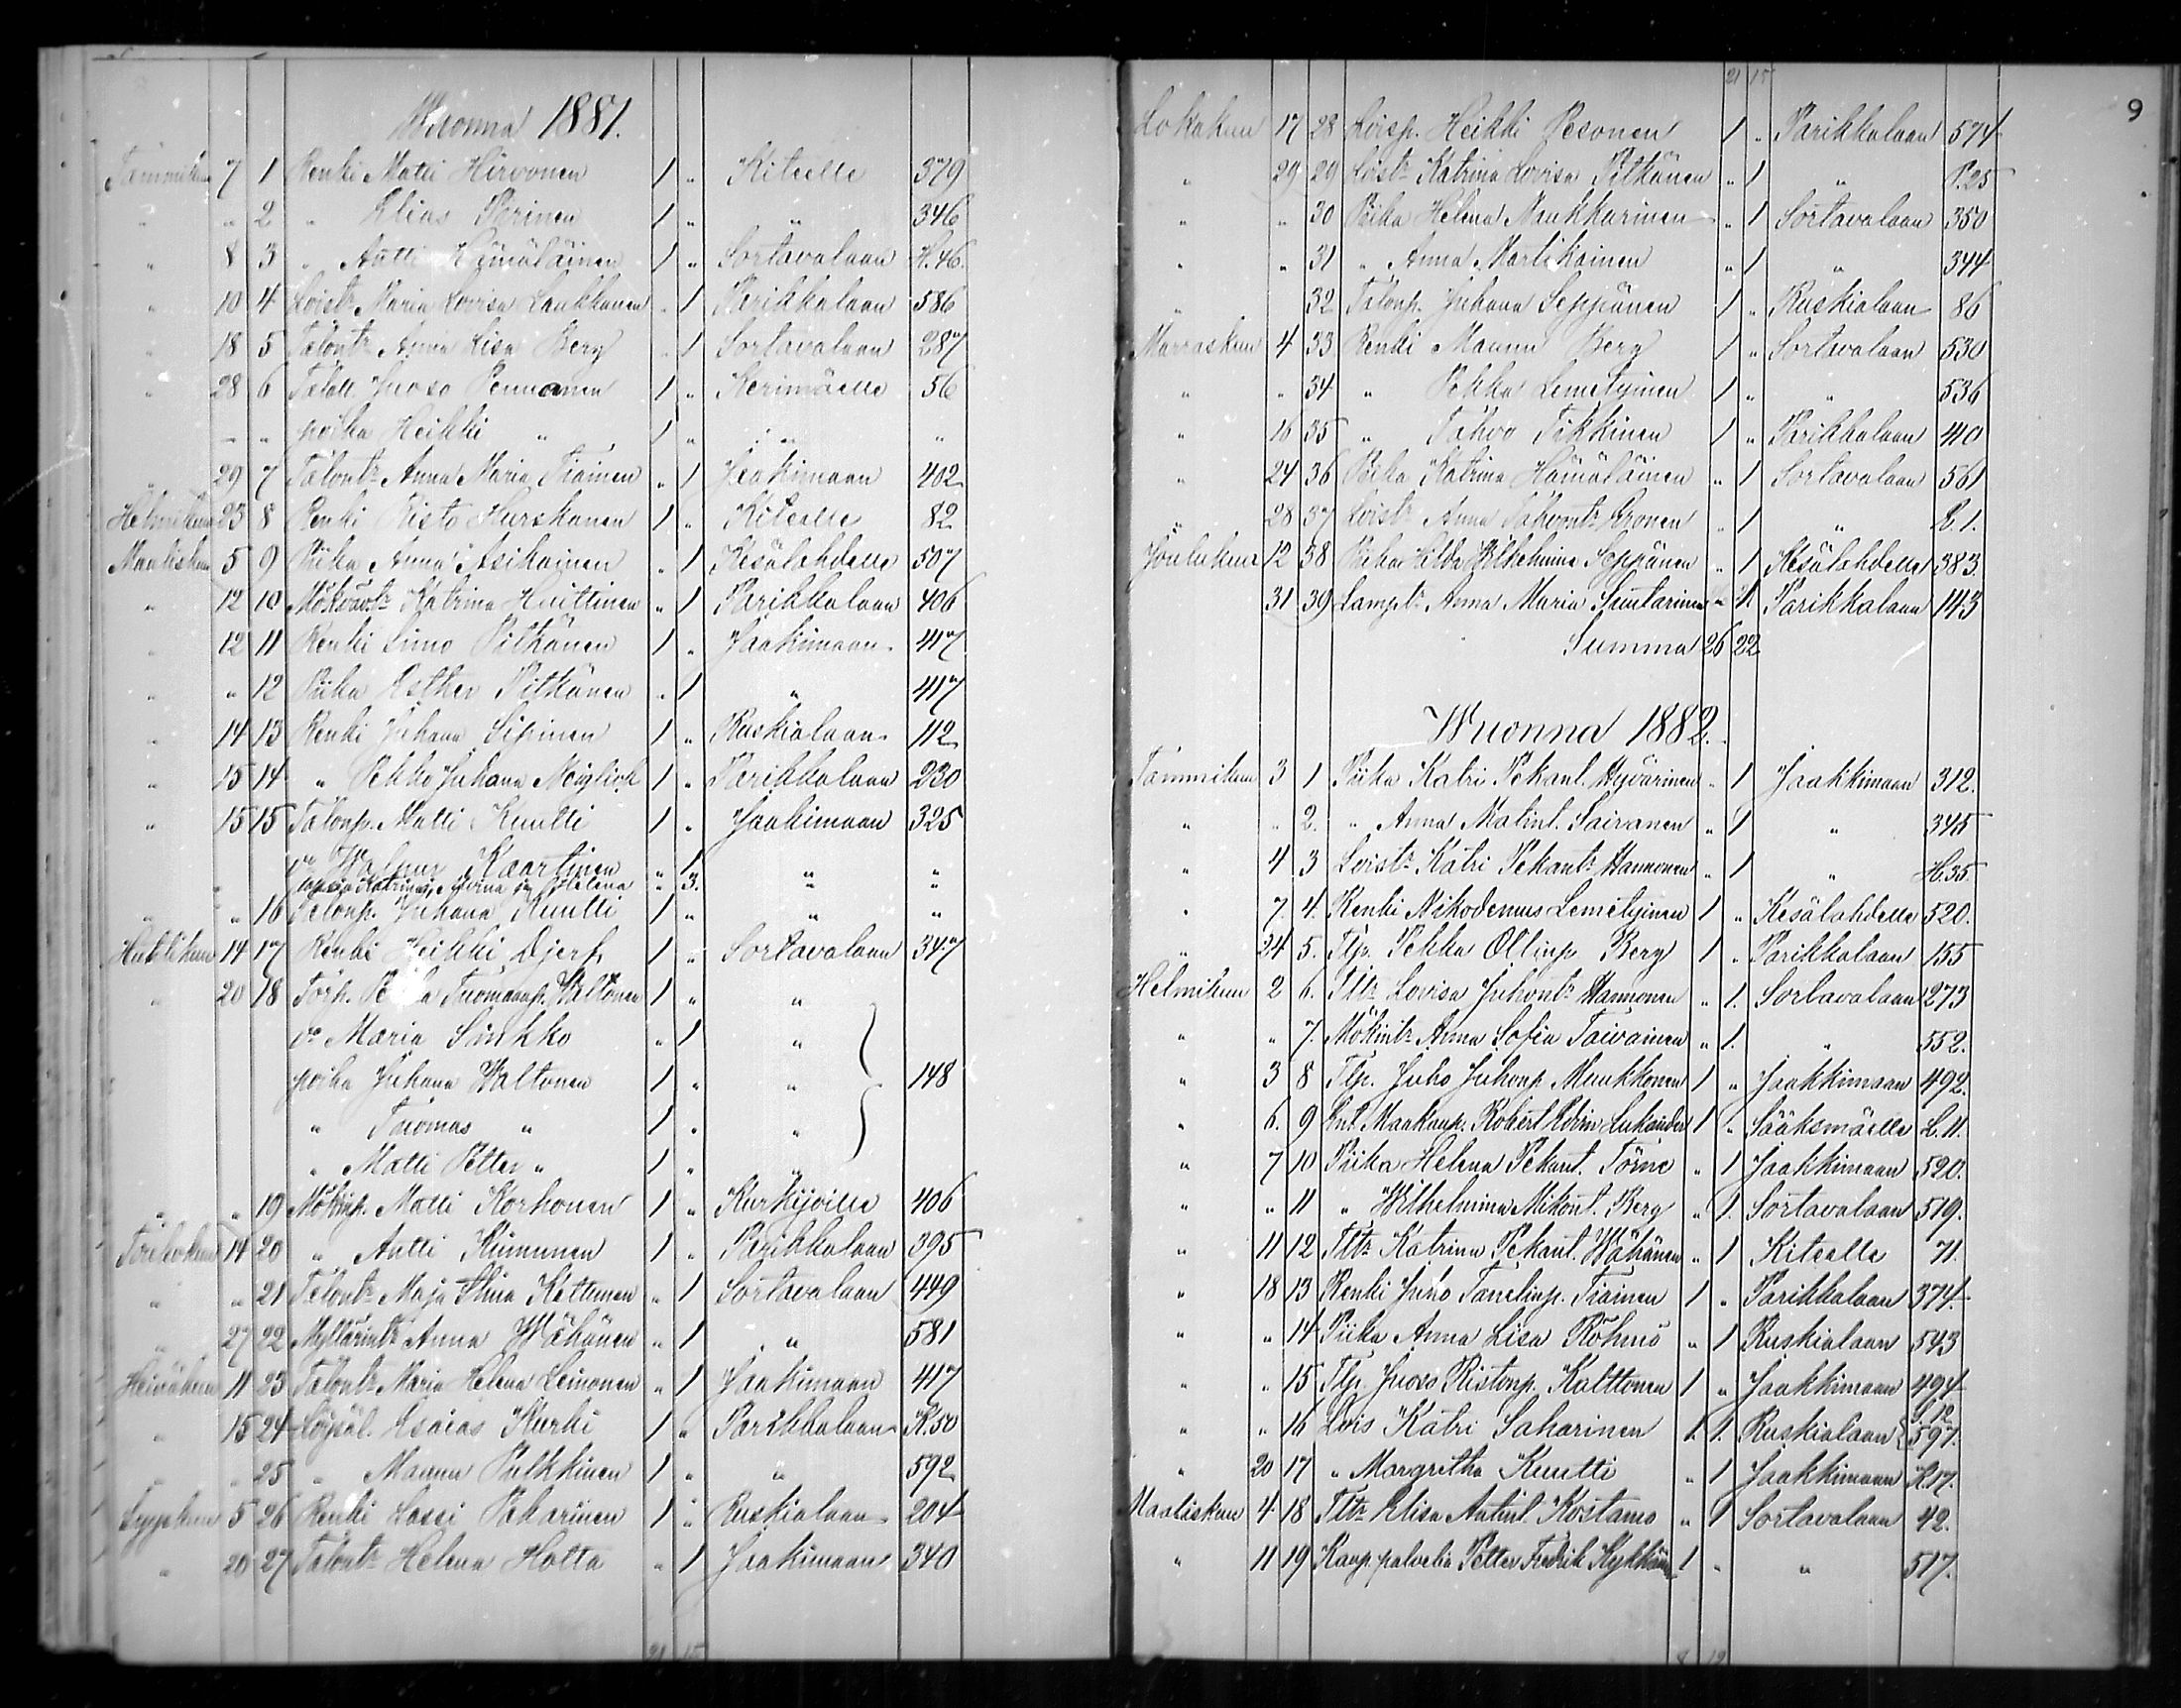 Wuonna 1881.
Tammikuu 7 1 Renki Matti Hirvonen 1 " Kiteelle 379
" " 2 " Elias Parinen 1 " " 346
" 8 3 " Antti Hämäläinen 1 " Sortavalaan H.46.
" 10 4 Loistr Maria Lovisa Laukkanen " 1 Parikkalaan 586
" 18 5 Talontr Anna Lisa Berg " 1 Sortavalaan 287
" 28 6 Taloll. Juoso Pennanen 1 " Kerimäelle 56
" " poika Heikki " 1 " " "
" 29 7 Talontr Anna Maria Tiainen " 1 Jaakimaan 402
Helmikuu 23 8 Renki Risto Hurskanen 1 " Kiteelle 82
Maaliskuu 5 9 Piika Anna Asikainen " 1 Kesälahdelle 507
" 12 10 Katrina Huittinen " 1 Parikkalaan 406
" 12 11 Renki Simo Pitkänen 1 " Jaakimaan 417
" " 12 Piika Esther Pitkänen " 1 " 417
" 14 13 Renki Juhana Sipinen 1 " Ruskialaan 112
" 15 14 " Pekka Juhana 1 " Parikkalaan 230
" 15 15 Talonp. Matti Kuutti 1 " Jaakimaan 325
vo Walpur Kaartinen " 1 " "
lapsia Katrina, ja Helena " 3. " "
" " 16 Talonp. Juhana Kuutti 1 " " "
Huhtikuu 14 17 Renki Heikki Djerf 1 " Sortavalaan 347
" 20 18 Torp. Pekka Tuomaanp. Waltonen 1 " "
vo Maria Sinkko " 1 "
poika Juhana Waltonen 1 " " 148
" Tuomas " 1 " "
" Matti Petter " 1 " "
" " 19 Mökinp. Matti Korhonen 1 " Kurkijoille 406
Toukokuu 14 20 " Antti Kinnunen 1 " Parikkalaan 395
" " 21 Talontr Maja Stina Kettunen " 1 Sortavalaan 449
" 27 22 Myllärintr Anna Wähänen " 1 " 581
Heinäkuu 11 23 Talontr Maria Helena Leinonen " 1 Jaakimaan 417
" 15 24 Esaias Kurki 1 " Parikkalaan K.50
" " 25 " Maunu Pulkkinen 1 " " 592
Syyskuu 5 26 Renki Lassi Pekarinen 1 " Ruskialaan 204
" 20 27 Talontr Helena Hotta " 1 Jaakimaan 340
21 15
9
21 15
Lokakuu 17 28 Loisp. Heikki Pesonen 1 " Parikkalaan 574
" 29 29 Loistr Katrina Lovisa Pitkänen " 1 " P.25
" " 30 Piika Helena Naukkarinen " 1 Sortavalaan 350
" " 31 " Anna Martikainen " 1 " 344
" 32 Talonp. Juhana Seppänen 1 " Ruskialaan 86
Marraskuu 4 33 Renki Maunu Berg 1 " Sortavalaan 530
" " 34 " Pekka Lemetyinen 1 " " 536
" 16 35 " Tahvo Tikkinen 1 " Parikkalaan 410
" 24 36 Piika Katrina Hämäläinen " 1 Sortavalaan 561
" 28 37 Loistr Anna Tahvontr Kronen " 1 "
Joulukuu 12 38 Piika Hilda Wilhelmina Seppänen " 1 Kesälahdelle 383.
31 39 Anna Maria Suutarinen Parikkalaan 143
Summa 26 22
Wuonna 1882.
Tammikuu 3 1 Piika Katri Pekant. Hyvärinen " 1 Jaakkimaan 312.
" " 2. " Anna Matint. Sairanen " 1 " 345
" 4 3 Loistr Katri Pekantr Hannonen " 1 " H.35
" 7. 4. Renki Nikodemus Lemetyinen 1 " Kesälahdelle 520.
" 24 5. Tlp. Pekka Ollinp Berg 1 " Parikkalaan 155
Helmikuu 2 6. Tltr Lovisa Juhontr Hannonen " 1. Sortavalaan 273
" " 7. Mökintr Anna Sofia Taivainen " 1. " 552.
" 3 8 Tlp. Juho Juhonp Muukkonen 1 " Jaakkimaan 492.
" 6. 9 Maakaup. Robert Edvin 1 " Sääksmäelle L.11.
" 7 10 Piika Helena Pekant. Törne " 1 Jaakkimaan 520.
" " 11 " Wilhelmina Mikont. Berg " 1. Sortavalaan 519.
" 11 12 Tltr Katrina Pekant. Wähänen " 1 Kiteelle 71.
" 18 13 Renki Juho Tanelinp. Tiainen 1 " Parikkalaan 374.
" " 14 Piika Anna Lisa Röhmö " 1 Ruskialaan 543
" " 15 Tlp. Juoso Ristonp. Kalttonen 1 " Jaakkimaan 494
" " 16 Lois Katri Saharinen 1. 1. Ruskialaan S.12 597.
" 20 17 " Margretha Kuutti " 1 Jaakkimaan K.17.
Maaliskuu 4 18 Tltr Elisa Antint. Kostamo " 1 Sortavalaan 42.
" 11 19 Kaup.palvelia Petter Fredrik 1 " " 517.
8 12